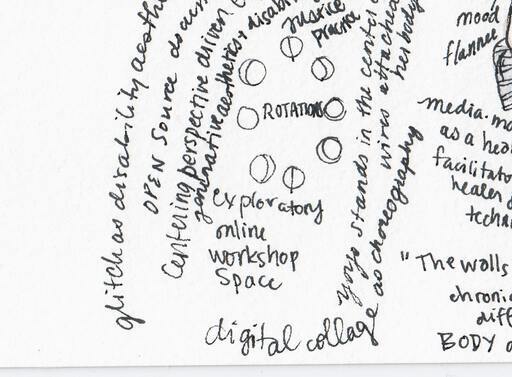 glitch as disability aesth
OPEN Source as acce
Centering perspective driven
generative aesthetics + disabili
Justice
Practice
ROTATIONS
exploratory
online
workshop
Space
digital collage
yoyo stands in the center o
wires attached
her body
as choreography
mood
flannel
media-ma
as a hea
facilitato
healer
techn
"The walls
chronic
diff
BODY